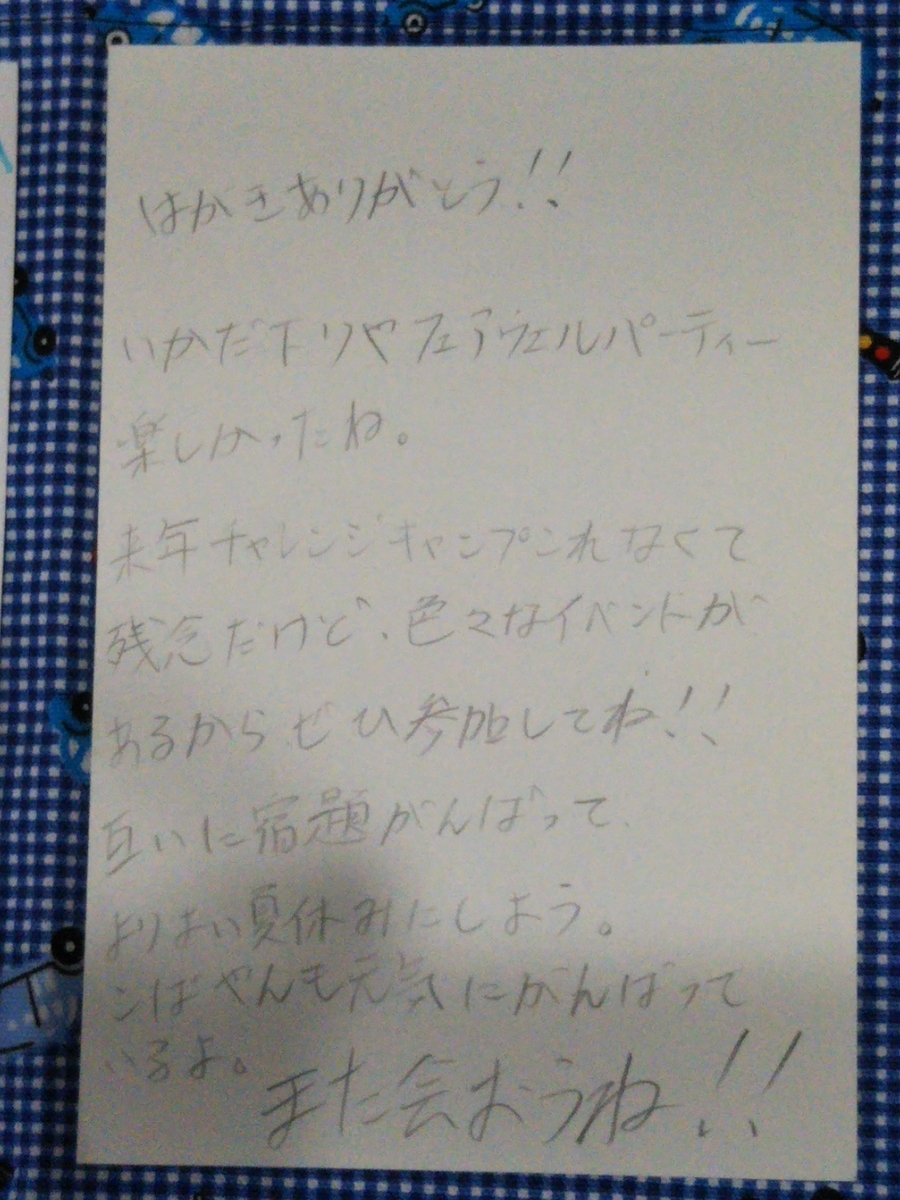 はがきありがとう!!
いかだ下りやフェアウェルパーティー
楽しかったね。
来年チャレンジキャンプこれなくて
残念だけど、色々なイベントが
あるからぜひ参加してね!!
互いに宿題がんばって
よりよい夏休みにしよう。
こばやんも元気にがんばって
いるよ。
また会おうね!!